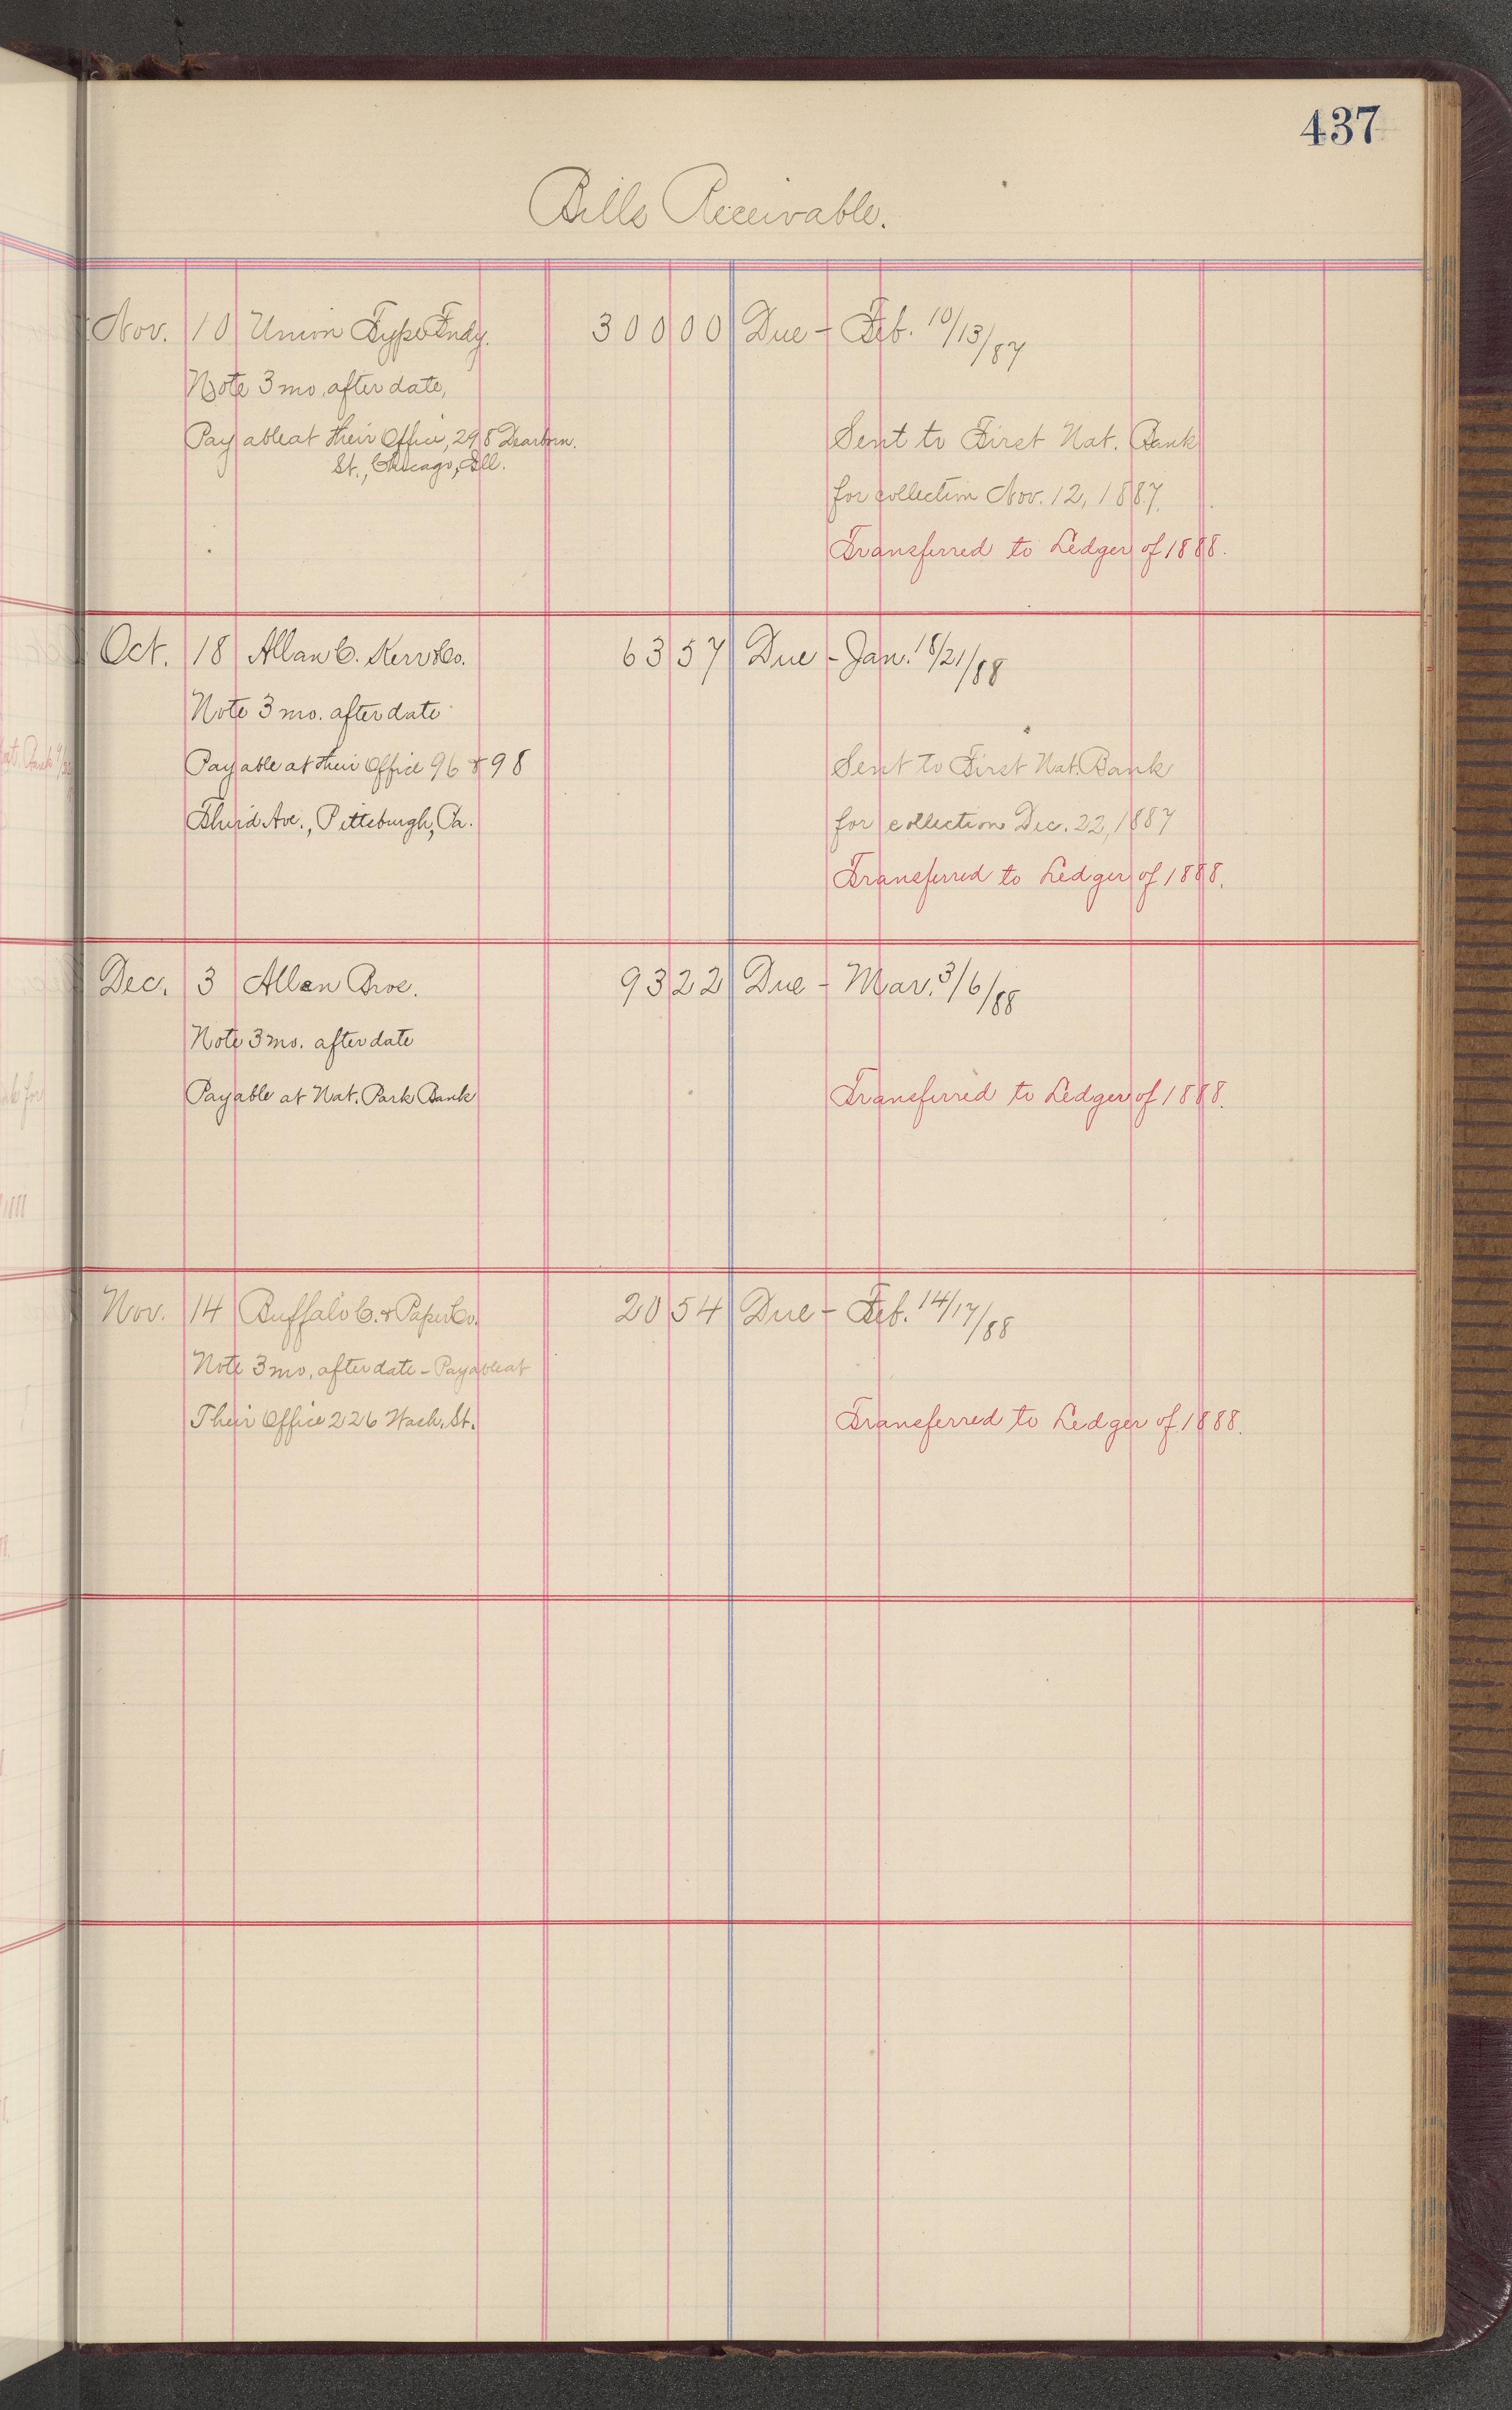 437
Bills Receivable.
Nov. 10 Union Type Fndy. 300 00 Due - Feb. 10/13/87
Note 3 mo. after date,
Payable at their Office, 298 Dearborn. Sent to First Nat. Bank
St., Chicago, Ill.
for collection Nov. 12, 1887.
Transferred to Ledger of 1888.
Oct. 18 Allan C. Kerr & Co. 63 57 Due - Jan. 18/21/88
Note 3 mo. after date
Payable at their Office 96 & 98 Sent to First Nat. Bank
Third Ave., Pittsburgh, Pa. for collection Dec. 22, 1887
Transferred to Ledger of 1888.
Dec. 3 Allen Bros. 93 22 Due - Mar. 3/6/88
Note 3 mo. after date
Payable at Nat. Park Bank Transferred to Ledger of 1888.
Nov. 14 Buffalo C. & Paper Co. 20 54 Due - Feb. 14/17/88
Note 3 mo. after date - Payable at
Their Office 226 Wash. St. Transferred to Ledger of 1888.